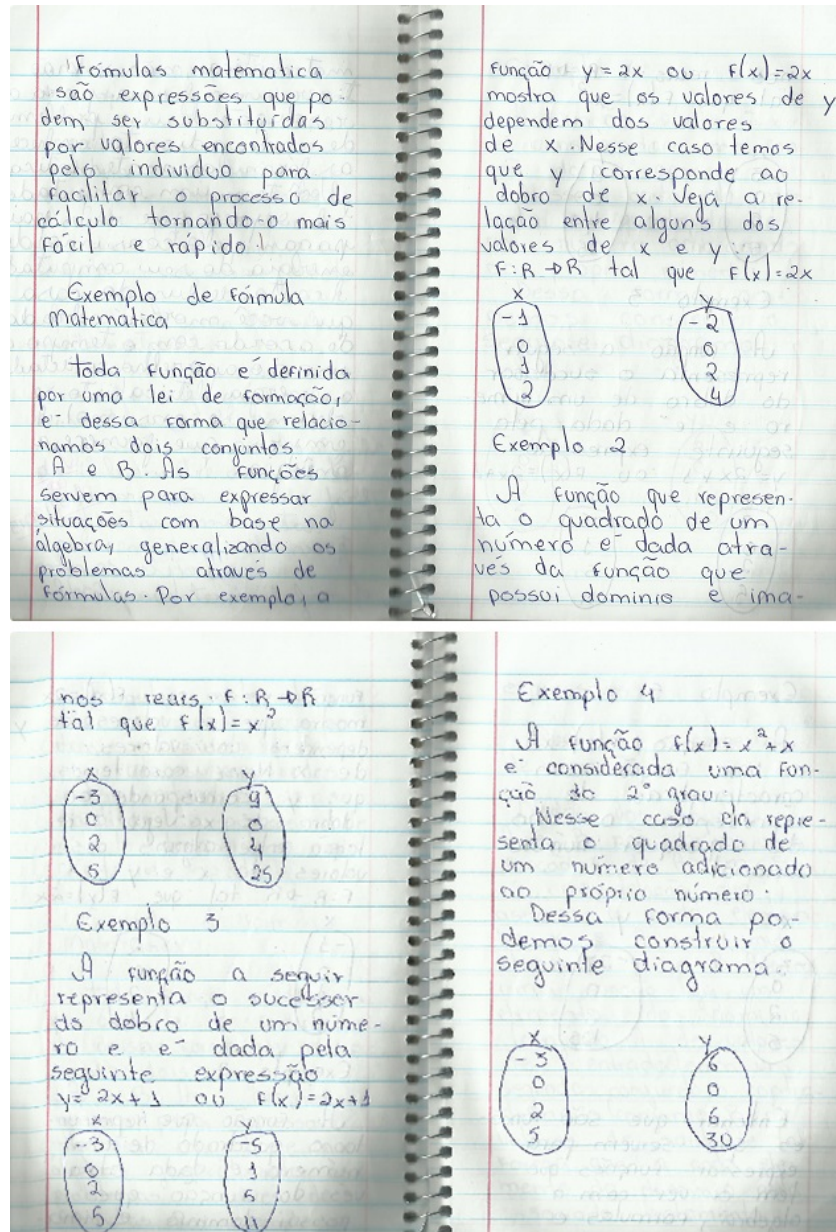 Fómulas matematica
são expressões que po-
dem ser substituídas
por valores encontrados
pelo individuo para
facilitar o processo de
cálculo tornando-o mais
fácil e rápido!
Exemplo de fórmula
Matematica
toda função é definida
por uma lei de formação,
é dessa forma que relacio-
namos dois conjuntos
A e B. As funções
servem para expressar
situações com base na
álgebra, generalizando os
problemas através de
fórmulas. Por exemplo, a
função y=2x ou f(x)=2x
mostra que os valores de y
dependem dos valores
de x. Nesse caso temos
que y corresponde ao
dobro de x. Veja a re-
lação entre alguns dos
valores de x e y:
F:R→R tal que f(x)=2x
x y
-1 -2
0 0
1 2
2 4
Exemplo 2
A função que represen-
ta o quadrado de um
número é dada atra-
vés da função que
possui dominio e ima-
nos reais. f:R→R
tal que f(x)=x²
x y
-3 9
0 0
2 4
5 25
Exemplo 3
A função a seguir
representa o sucessor
do dobro de um núme-
ro e é dada pela
seguinte expressão
y=2x+1 ou f(x)=2x+1
x y
-3 -5
0 1
2 5
5 11
Exemplo 4
A função f(x)=x²+x
é considerada uma fun-
ção do 2° grau.
Nesse caso ela repre-
senta o quadrado de
um número adicionado
ao próprio número.
Dessa forma po-
demos construir o
seguinte diagrama.
x y
-3 6
0 0
2 6
5 30